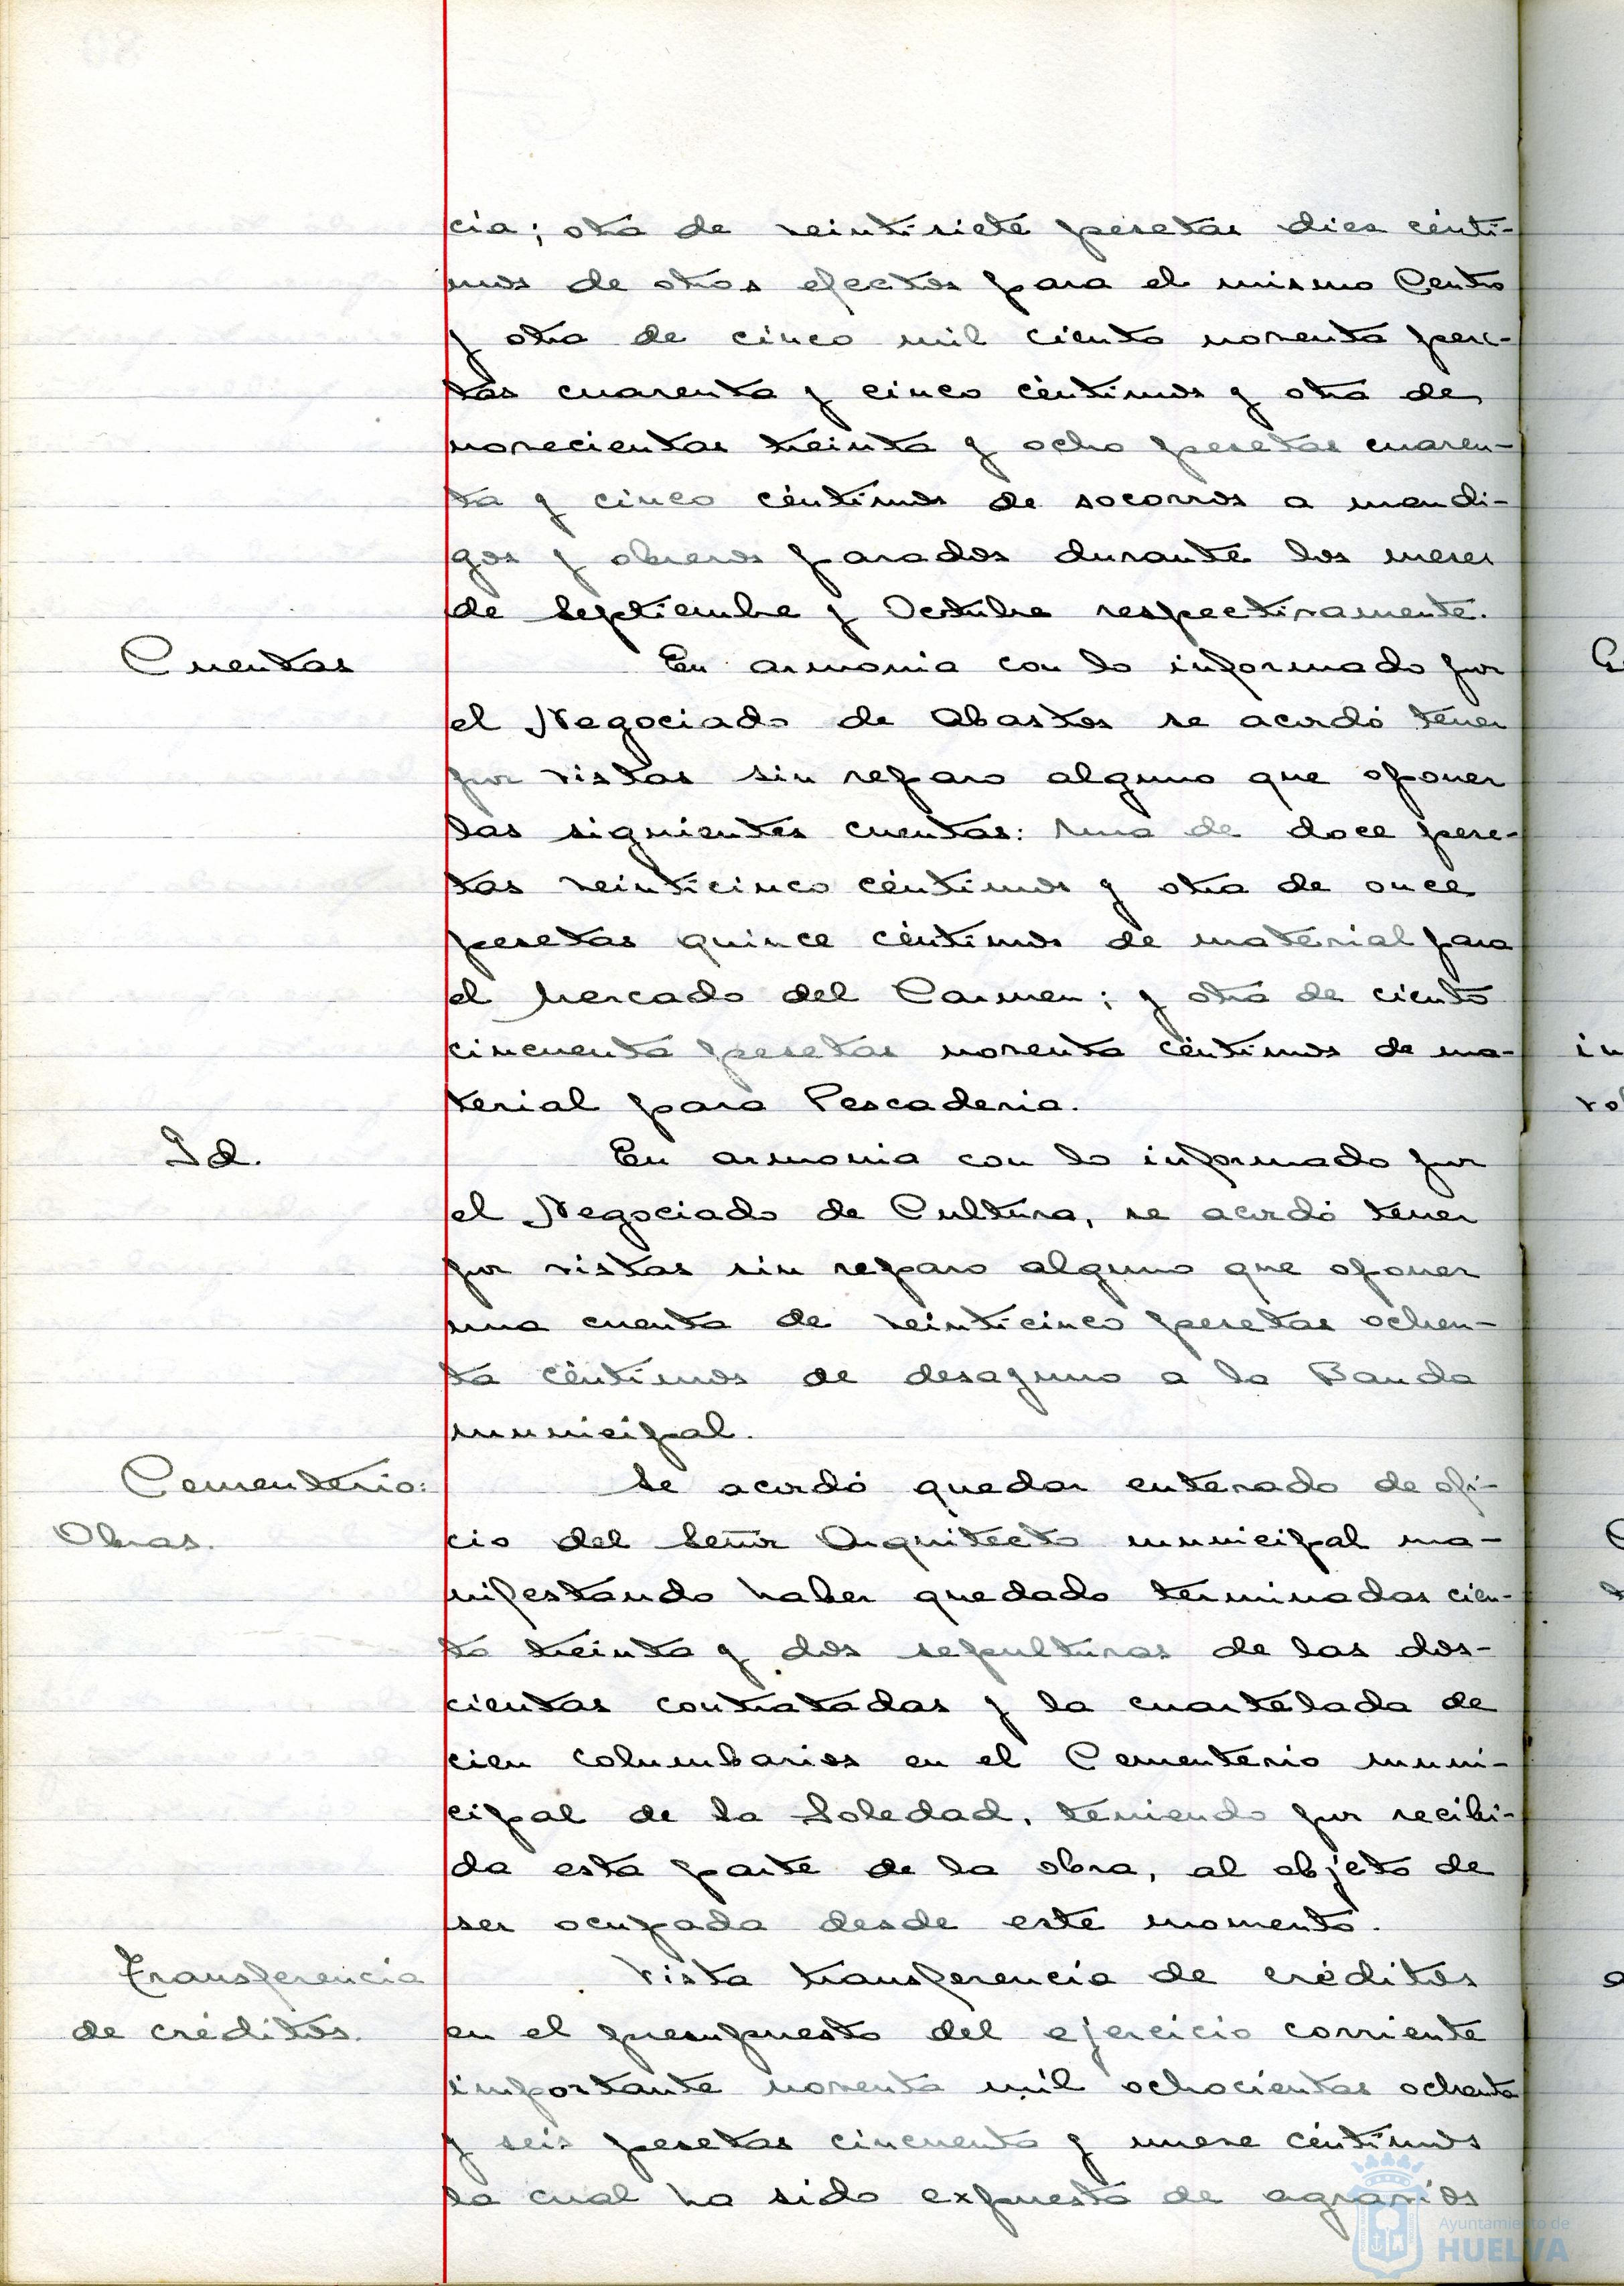 cia; otra de veintisiete pesetas diez cénti-
mos de otros efectos para el mismo Centro
y otra de cinco mil ciento noventa pese-
tas cuarenta y cinco céntimos y otra de
novecientas treinta y ocho pesetas cuaren-
ta y cinco céntimos de socorros a mendi-
gos y obreros parados durante los meses
de Septiembre y Octubre respectivamente.
Cuentas
En armonia con lo informado por
el Negociado de Abastos se acordó tener
por vistas sin reparo alguno que oponer
las siguientes cuentas: una de doce pese-
tas veinticinco céntimos y otra de once
pesetas quince céntimos de material para
el Mercado del Carmen; y otra de ciento
cincuenta pesetas noventa céntimos de ma-
terial para Pescaderia.
Id.
En armonia con lo informado por
el Negociado de Cultura, se acordó tener
por vistas sin reparo alguno que oponer
una cuenta de veinticinco pesetas ochen-
ta céntimos de desayuno a la Banda
municipal.
Cementerio:
Obras.
Se acordó quedar enterado de ofi-
cio del Señor Arquitecto municipal ma-
nifestando haber quedado terminadas cien-
to treinta y dos sepulturas de las dos-
cientas contratadas y la cuartelada de
cien columbarios en el Cementerio muni-
cipal de la Soledad, teniendo por recibi-
da esta parte de la obra, al objeto de
ser ocupada desde este momento.
Transferencia
de créditos.
Vista transferencia de créditos
en el presupuesto del ejercicio corriente
importante noventa mil ochocientas ochenta
y seis pesetas cincuenta y nueve céntimos
la cual ha sido expuesta de agravios
Ayuntamiento de
HUELVA